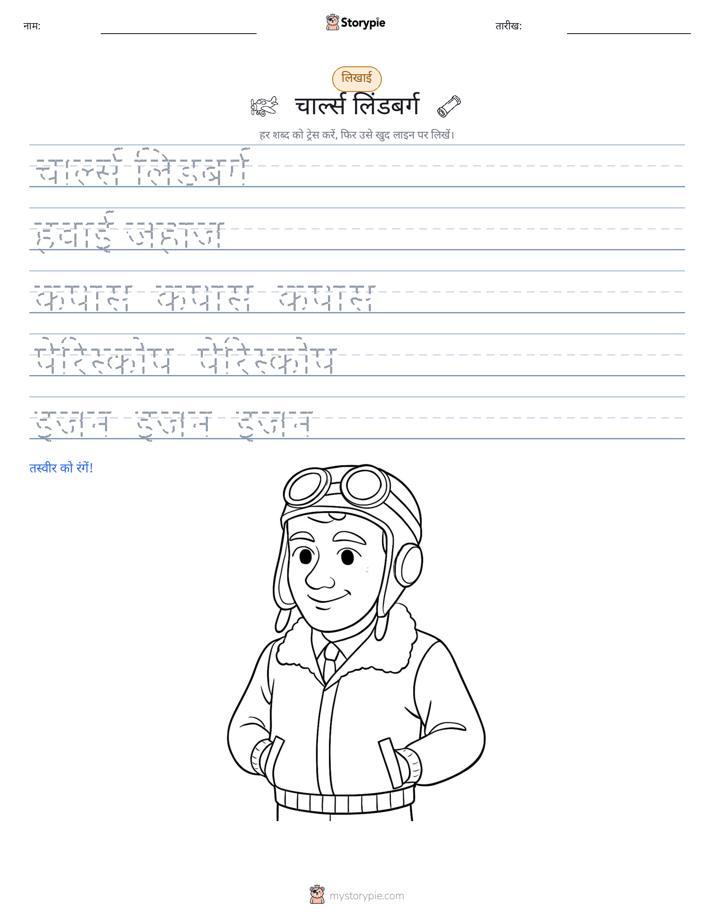 नाम:
Storypie
तारीख:
लिखाई
चार्ल्स लिंडबर्ग
हर शब्द को ट्रेस करें, फिर उसे खुद लाइन पर लिखें।
चार्ल्स लिंडबर्ग
हवाई जहाज
कपास कपास कपास
पेरिस्कोप पेरिस्कोप
इंजन इंजन इंजन
तस्वीर को रंगें!
mystorypie.com